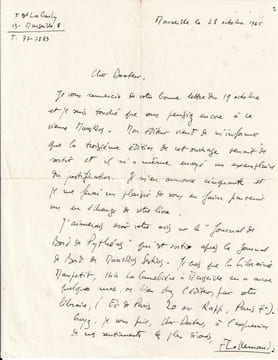 13 - Marseille 8
T. 77-7883
Marseille le 28 octobre 1965
Cher Docteur,
Je vous remercie de votre bonne lettre du 19 octobre
et je suis touché que vous pensiez encore à ce
vieux Marseille. Mon éditeur vient de m'informer
que la troisième édition de cet ouvrage venait de
sortir et il m'a même envoyé un exemplaire
de justification. J'en aurai cinquante et
je me ferai un plaisir de vous en faire parvenir
un en échange de votre livre.
J'aimerais avoir votre avis sur le "Journal de
Bord de Pythéas" qui est sorti après le Journal
de Bord de Je crois que la librairie
Maupetit, 144 La Canebière à Marseille en a encore
quelques uns, ou bien chez l'éditeur, par votre
libraire, (Ed de Paris 20 av Rapp, Paris 7e).
Croyez, je vous prie, cher Docteur, à l'expression
de mes sentiments les plus
F Lallemand